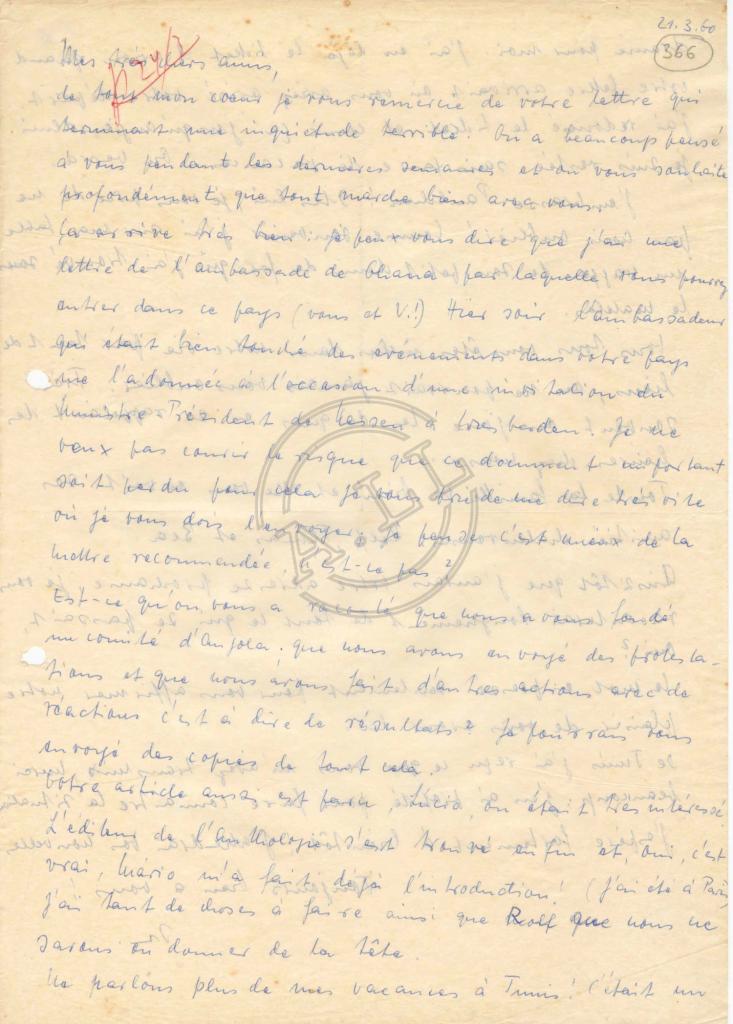 21.3.60
366
R 24/3
Mes très chers amis,
de tout mon coeur je vous remercie de votre lettre qui
terminait une inquiétude terrible. On a beaucoup pensé
à vous pendant les dernières semaines et on vous souhaite
profondément que tout marche bien avec vous.
Ça arrive très bien: je peux vous dire que j'ai une
lettre de l'ambassade de Ghana par laquelle vous pourrez
entrer dans ce pays (vous et V.!) Hier soir l'ambassadeur
qui était bien touché des evénements dans votre pays
me l'a donnée à l'occasion d'une invitation du
Ministre Président de Hessen à Wiesbaden. Je ne
veux pas courir le risque que ce document important
soit perdu pour cela je vous prie de me dire très vite
où je vous dois l'envoyer, je pense c'est mieux de la
mettre recommandée, n'est-ce pas?
Est-ce qu'on vous a raconté que nous avons fondé
un comité d'Angola, que nous avons envoyé des protesta-
tions et que nous avons fait d'autres actions avec de
reactions c'est à dire de résultats? Je pourrais vous
envoyé des copies de tout cela.
Votre article aussi est paru, Lúcio, on était très intéressé.
L'éditeur de l'Anthologie s'est trouvé enfin et, oui, c'est
vrai, Mário m'a fait déjà l'introduction! (j'ai été à Paris)
j'ai tant de choses à faire ainsi que Rolf que nous ne
savons où donner de la tête.
Ne parlons plus de mes vacances à Tunis! C'était un
ALL